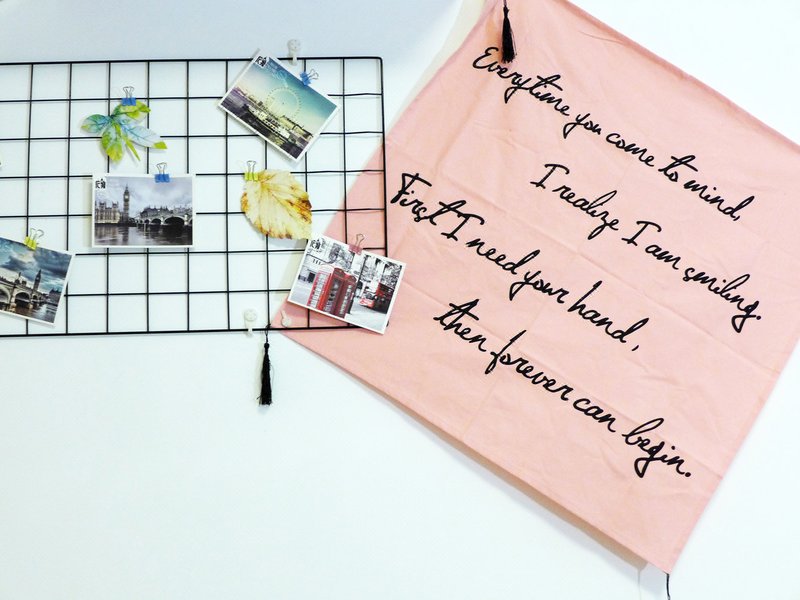 Everytime you come to mind,
I realize I am smiling.
First I need your hand,
then forever can begin.